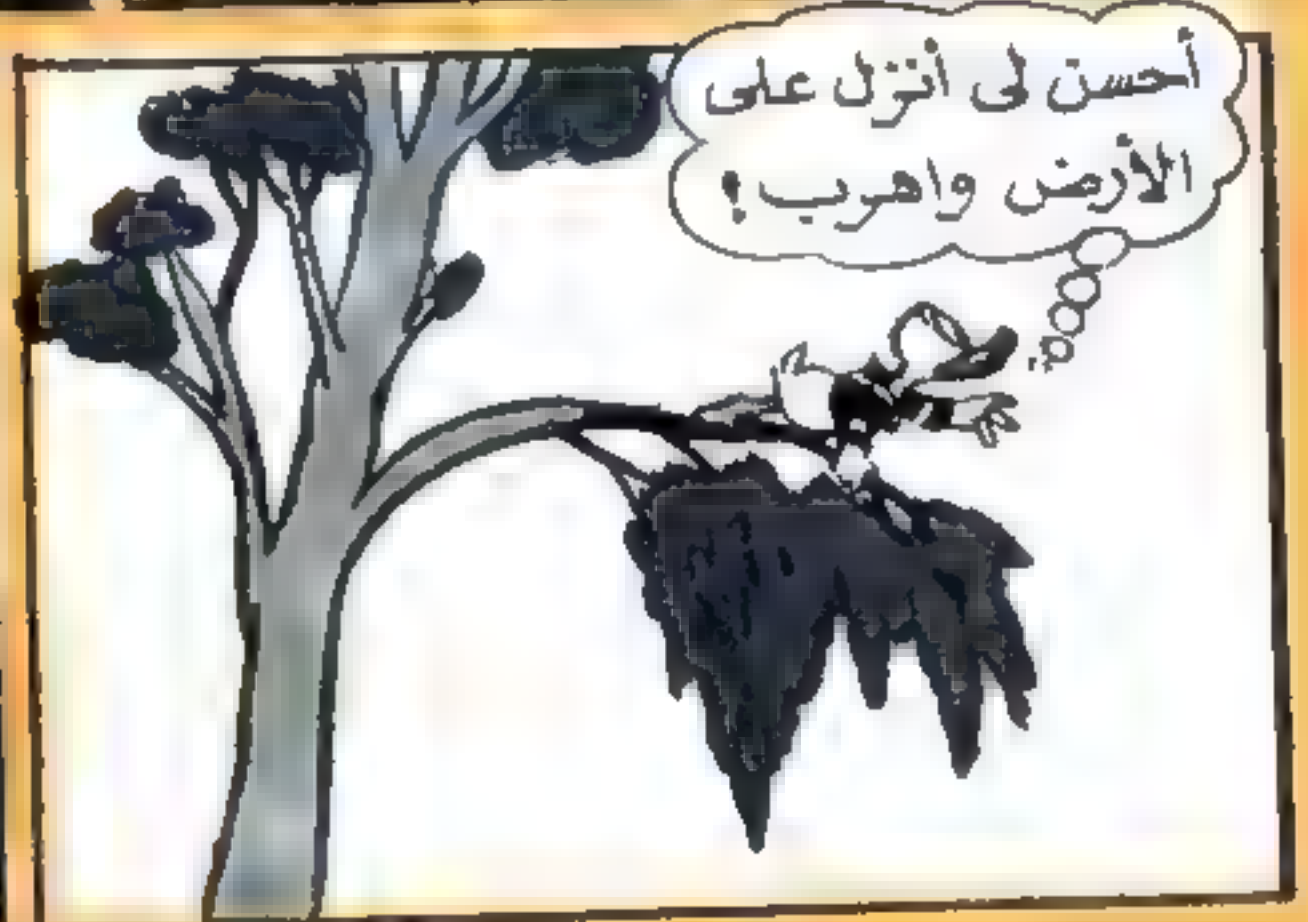 أحسن لى أنزل على
الأرض واهرب !